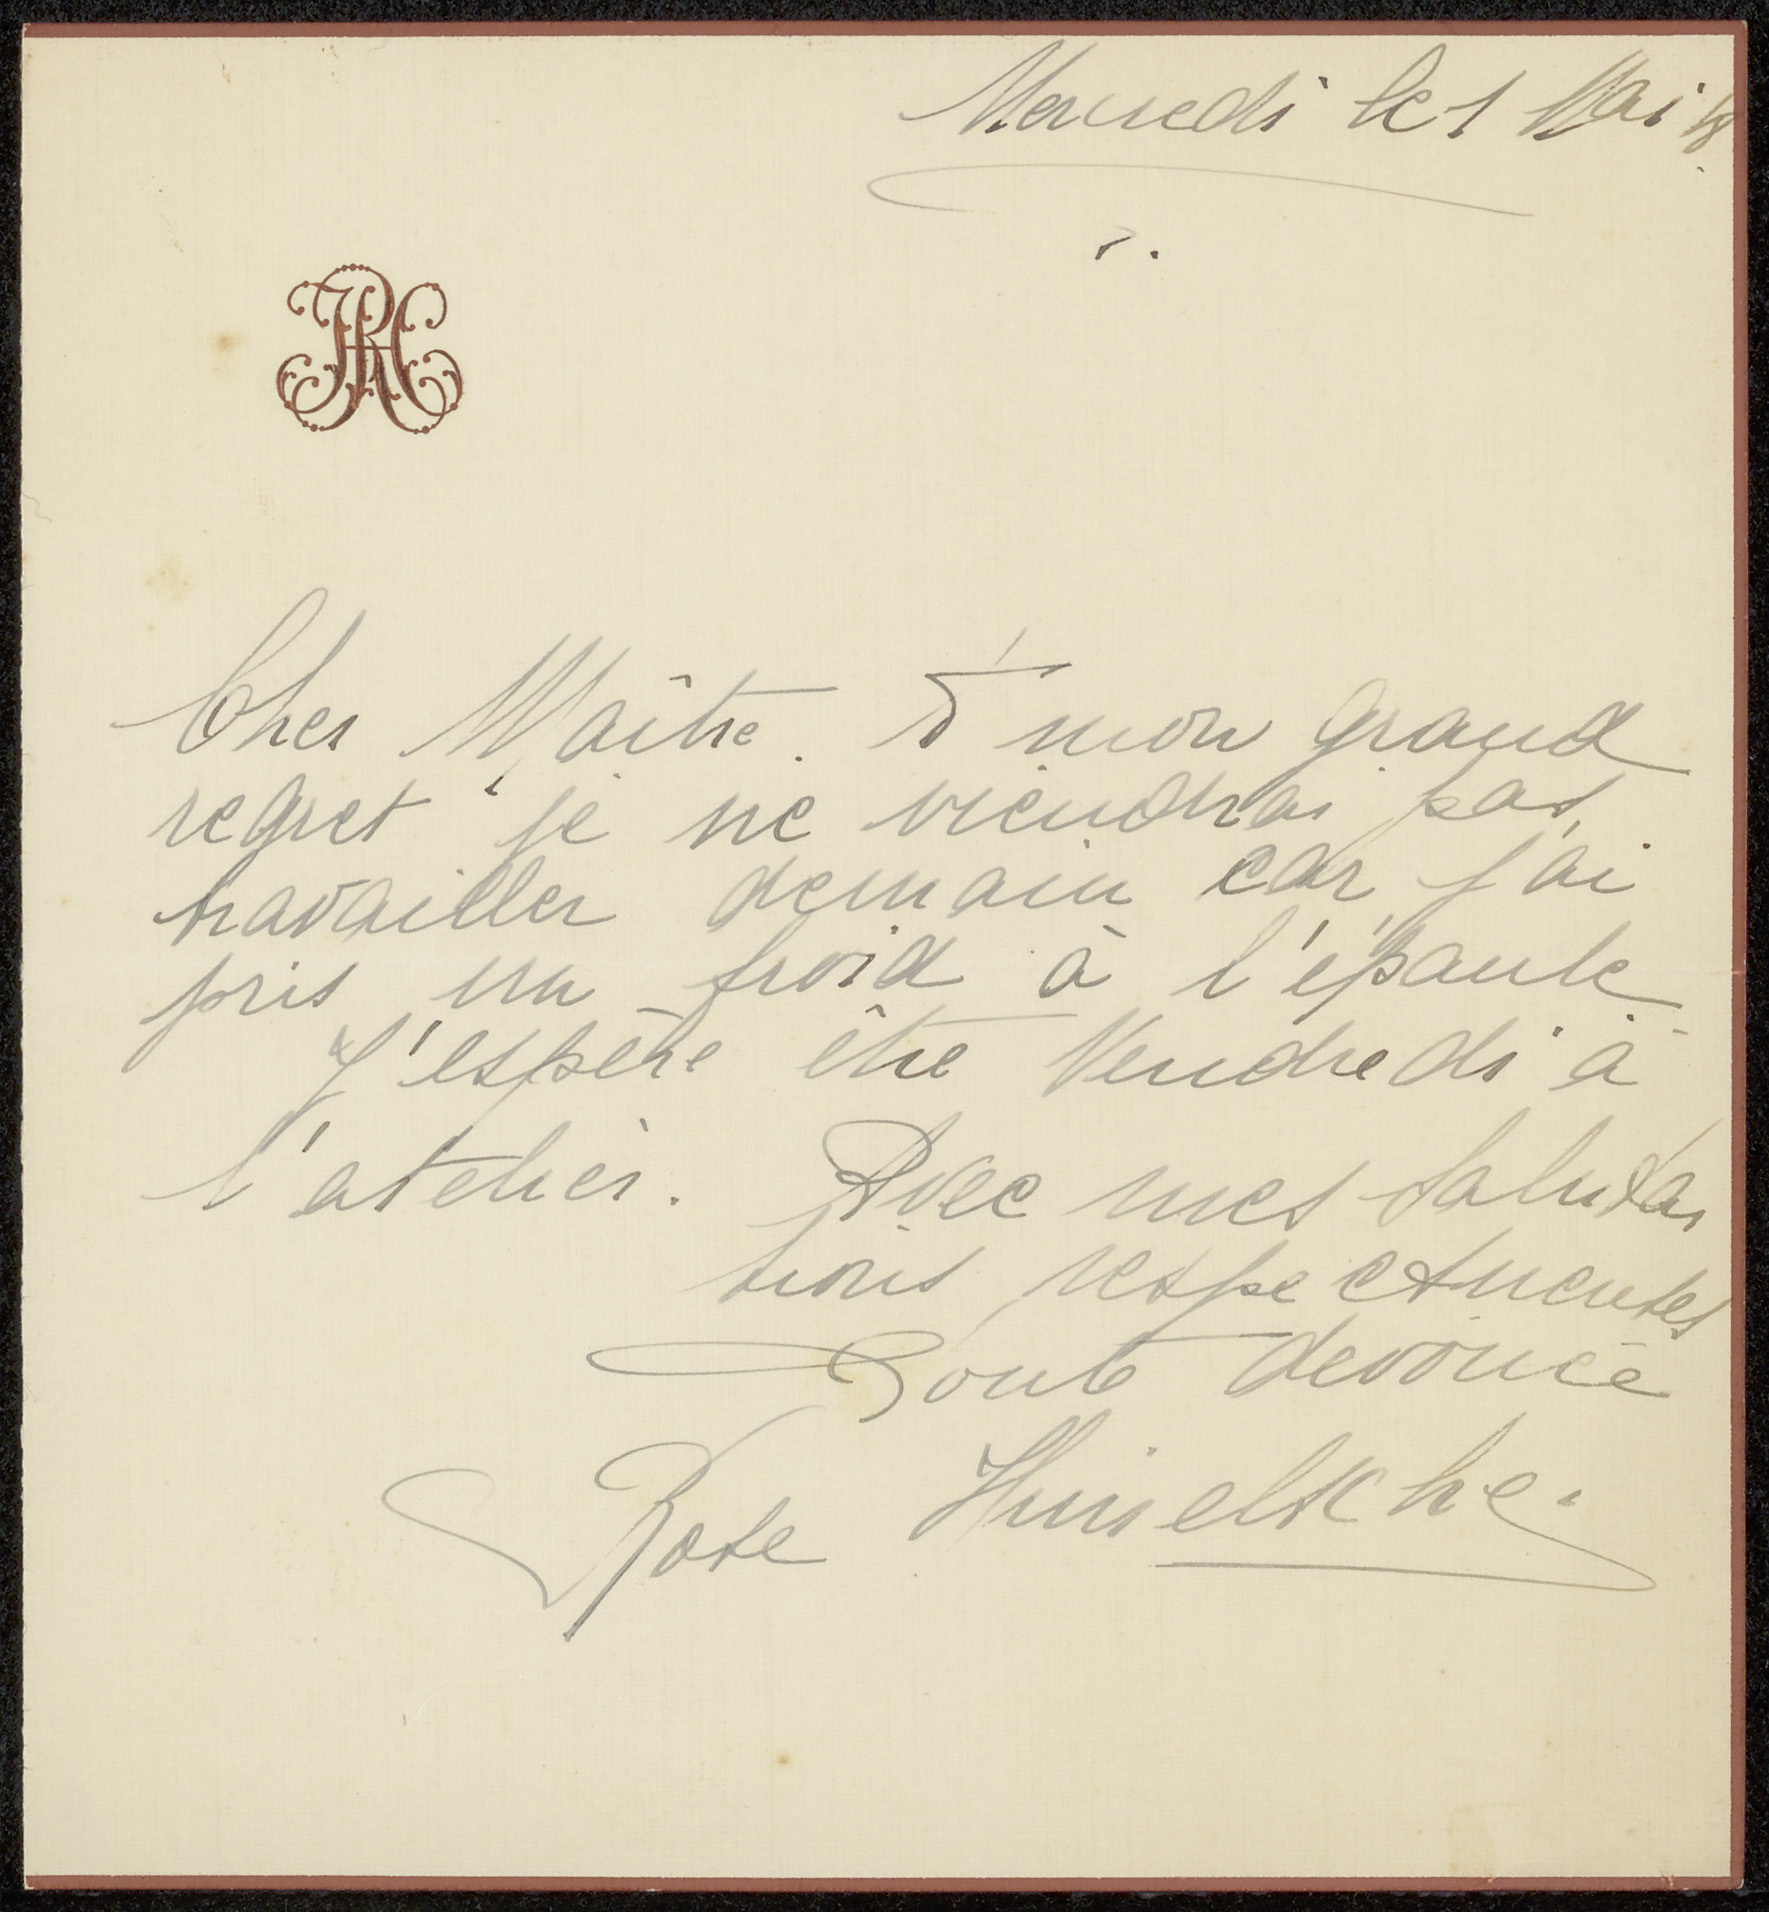 Mercredi le 1 Mai 18.
RH
Cher Maître. À mon grand
regret je ne viendrai pas
travailler demain car j'ai
pris un froid à l'épaule.
J'espère être Vendredi à
l'atelier. Avec mes saluta
tions respectueuses
Toute devouée
Rose